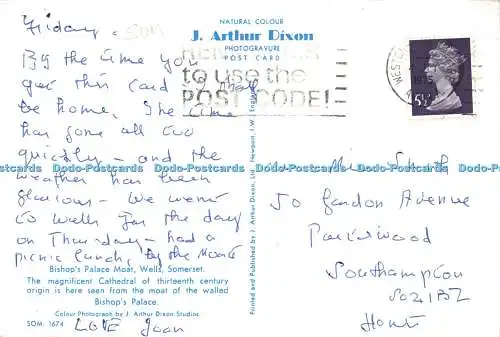 Friday. SOM
NATURAL COLOUR
J. Arthur Dixon
PHOTOGRAVURE
POST CARD
to use the
POST CODE!
WESTON
5½P
By the time you
get this card I'll
be home. The time
has gone all too
quickly - and the
weather has been
glorious - We went
to Wells for the day
on Thursday - had a
picnic lunch, by the Moate
Bishop's Palace Moat, Wells, Somerset.
The magnificent Cathedral of thirteenth century
origin is here seen from the moat of the walled
Bishop's Palace.
Colour Photograph by J. Arthur Dixon Studios.
SOM. 1674
LOVE Joan
Printed and Published by J. Arthur Dixon, Newport, I.W., England.
Smith
50 Gordon Avenue
Portswood
Southampton
Hants
Dodo-Postcards Dodo-Postcards Dodo-Postcards Dodo-Postcards Dodo-Postcards